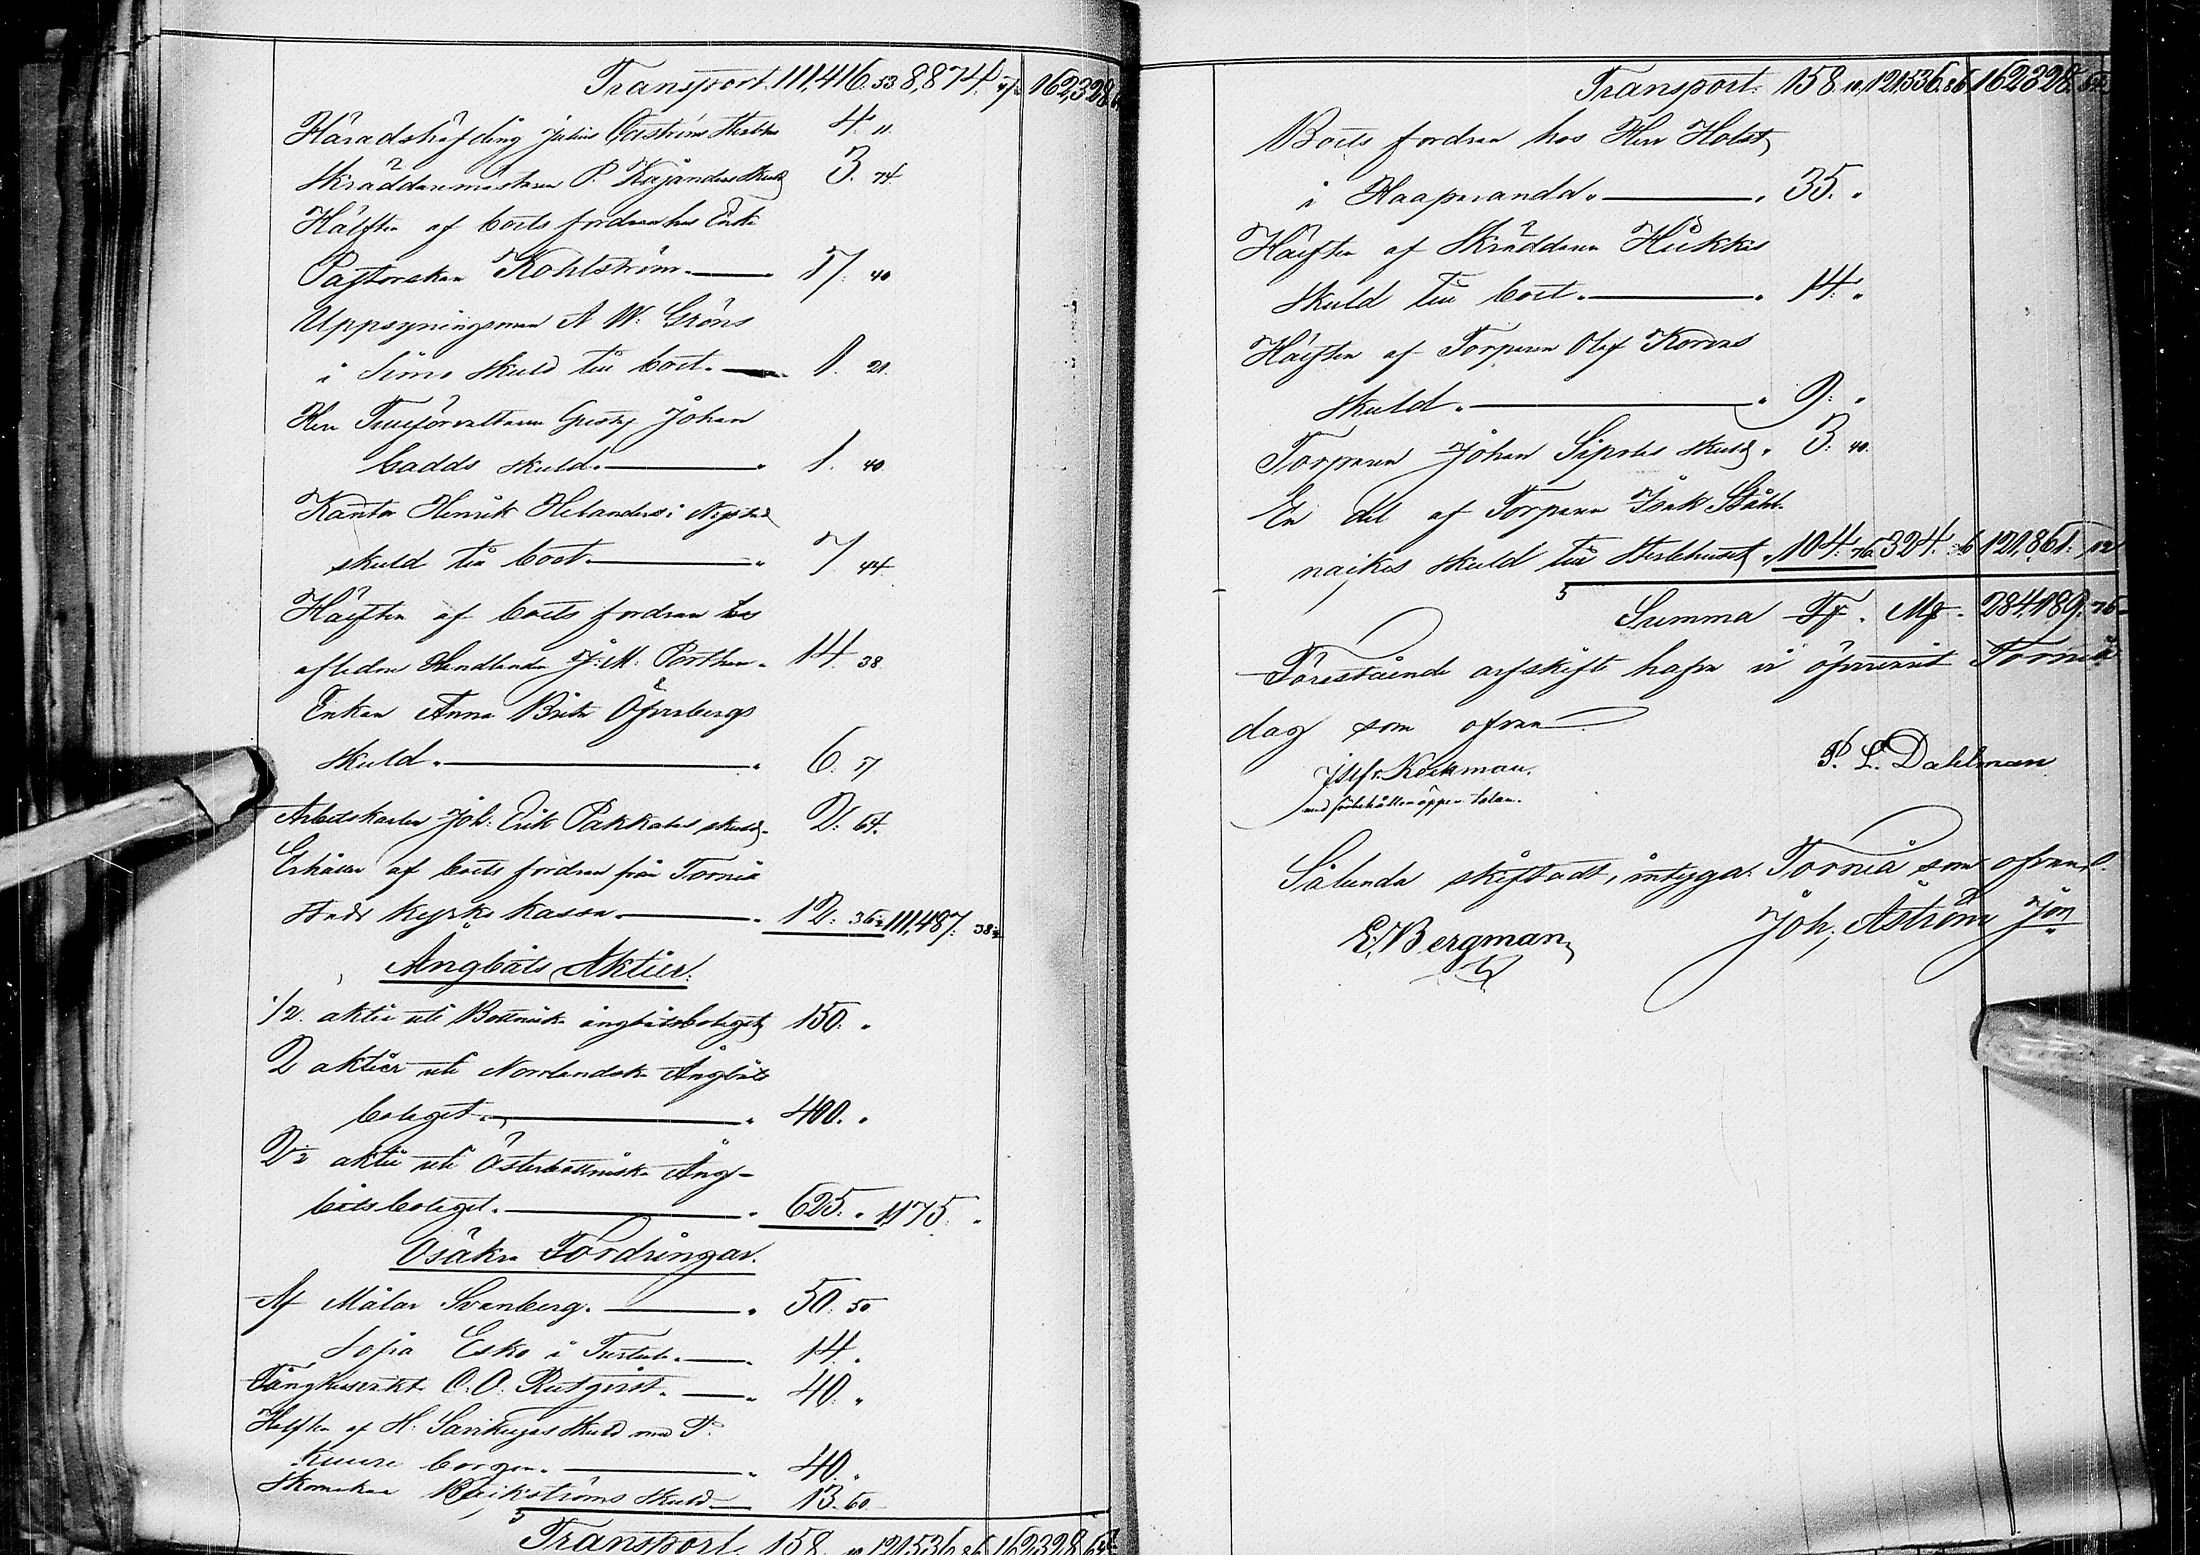 Transport. 111,416. 53. 8,874. 162,328
Häradshöfding Julius 4. 11.
Skräddaremästaren P. Kajanders skuld 3. 74.
Hälften af boets fordran hos Enke
Pastorskan Kohlström. 17. 40
Uppsyningsman A. W. Gröns
i Simo skuld till boet. 1. 21.
Herr Tullförvaltaren Gustaf Johan
Cadds skuld. 1. 40
Kantor Henrik Helanders i
skuld till boet. 7. 44.
Hälften af boets fordran hos
aflidne Handlanden J. M. Porthen. 14. 38
Enkan Anna Brita Öfverbergs
skuld. 6. 57
Arbetskarlen Joh. Erik Pakkalas skuld. 2. 64.
af boets fordran från Torneå
Stads kyrko kassa. 12. 36½ 111,487. 38½
Ångbåts Aktier.
1/2 aktie uti Bottniska ångbåtsbolaget 150. "
2 aktier uti Norrlandska Ångbåts
bolaget. 400. "
2½ aktie uti Österbottniska Ång-
båtsbolaget. 625. " 1,175. "
Osäkra Fordringar.
Af Målar Svanberg. 50. 50
Sofia Esko i 14. "
Fångkusenkt. C. O. 40. "
Hälften af H. skuld med P.
borgen. 40. "
Skomakar skuld 13. 60
Transport. 158. 10 121536. 86 162328. 64
Transport. 158. 10. 121536. 86 162328. 64.
Boets fordran hos Herr Holst
i Haaparanda. 35. "
Hälften af Skräddaren Hukkis
skuld till boet. 14. "
Hälften af Torparen Olof Korvas
skuld. 9. "
Torparen Johan Sipolas skuld. 3. 40.
En del af Torparen Isak Ståhl-
naikis skuld till Sterbhuset. 104. 76. 324. 26 121,861. 12
Summa Mk. 284,189. 76
Förestående arfskifte hafva vi öfverenst Torneå
dag som ofvan
Josef Kockman. P. L. Dahlman
med förbehållen öppen talan.
Sålunda skiftadt, intyga. Torneå som ofvan.
E. Bergman Joh. Åström Jon